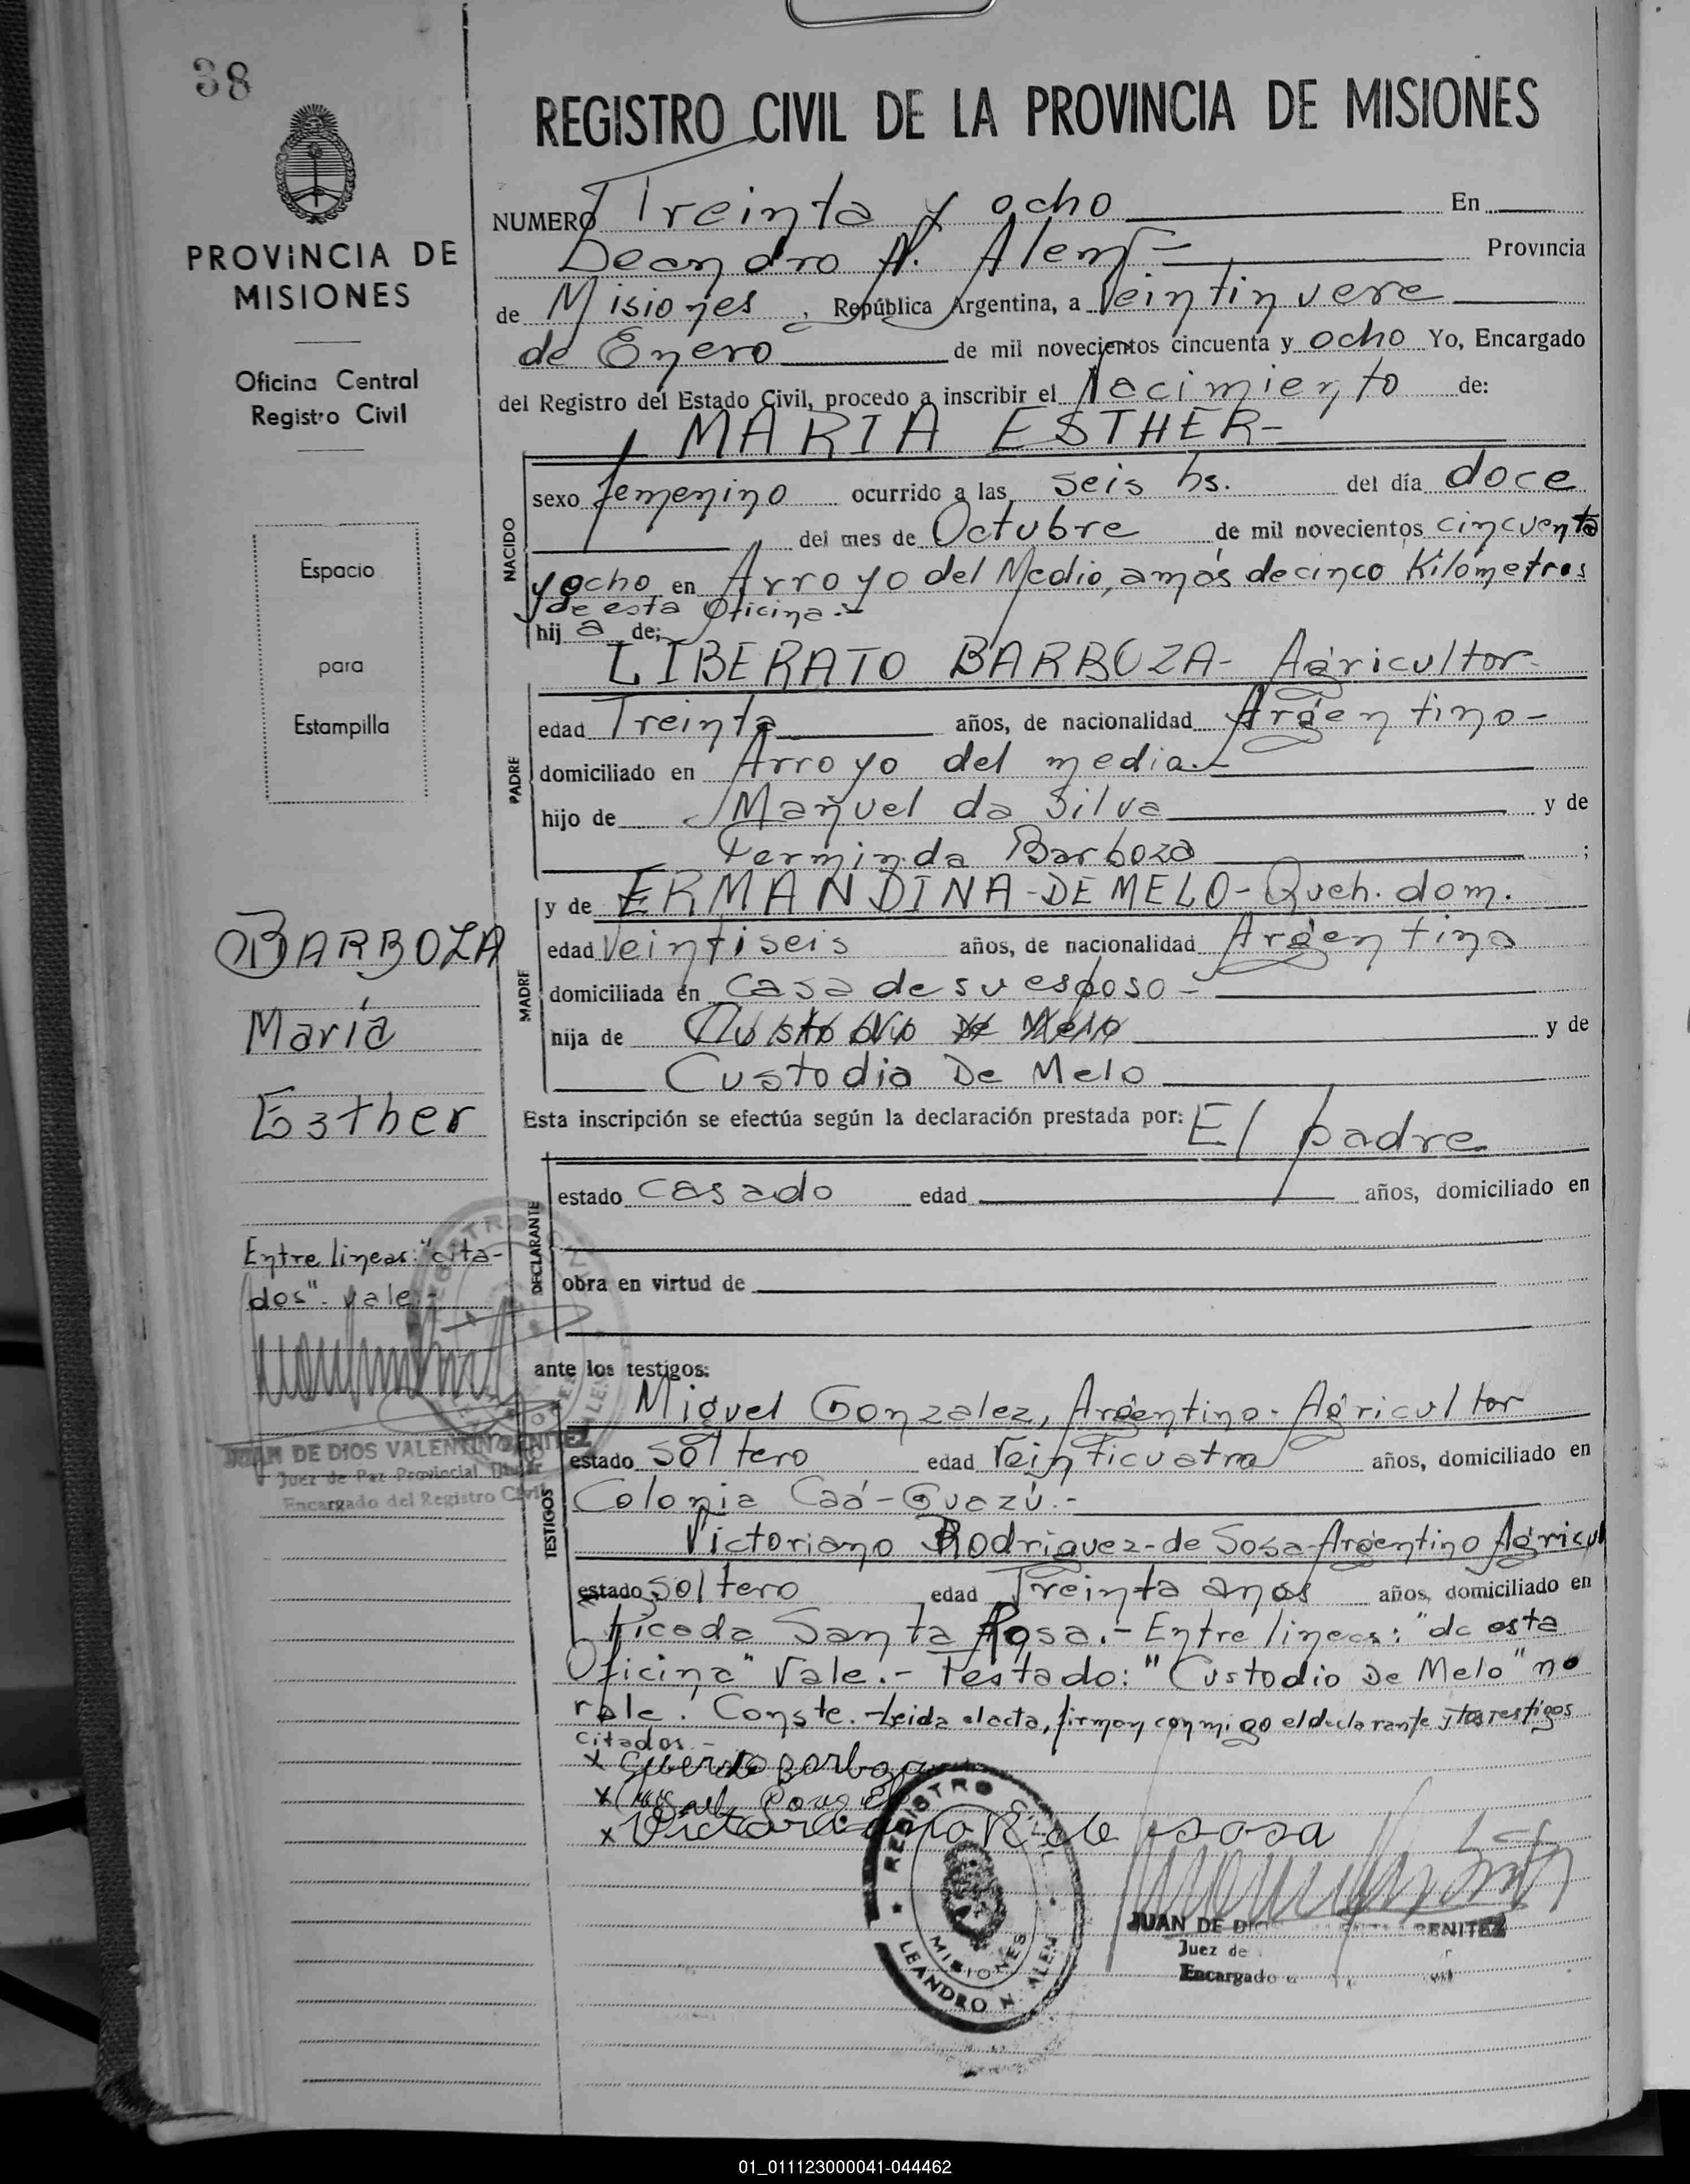 38
REGISTRO CIVIL DE LA PROVINCIA DE MISIONES
PROVINCIA DE
MISIONES
Oficina Central
Registro Civil
Espacio
para
Estampilla
NUMERO Treinta y ocho En
Leandro N. Alem Provincia
de Misiones, República Argentina, a Veintinueve
de Enero de mil novecientos cincuenta y ocho Yo, Encargado
del Registro del Estado Civil, procedo a inscribir el Nacimiento de:
MARIA ESTHER-
NACIDO
sexo femenino ocurrido a las seis hs. del día doce
del mes de Octubre de mil novecientos cincuenta
y ocho en Arroyo del Medio, a más de cinco Kilómetros
de esta Oficina.-
hija de;
LIBERATO BARBOZA- Agricultor-
PADRE
edad Treinta años, de nacionalidad Argentino-
domiciliado en Arroyo del media.-
hijo de Manuel da Silva y de
Ferminda Barboza ;
y de ERMANDINA-DE MELO-Queh. dom.
MADRE
edad Veintiseis años, de nacionalidad Argentina
domiciliada en casa de su esposo-
nija de Custodio De Melo y de
Custodia De Melo
BARBOZA
María
Esther
Esta inscripción se efectúa según la declaración prestada por: El padre
DECLARANTE
estado casado edad años, domiciliado en
obra en virtud de
Entre lineas: "cita-
dos". vale.-
JUAN DE DIOS VALENTIN BENITEZ
Juez de Paz Provincial Titular
Encargado del Registro Civil
ante los testigos:
Miguel Gonzalez, Argentino- Agricultor
TESTIGOS
estado soltero edad Veinticuatro años, domiciliado en
Colonia Caá-Guazú.-
Victoriano Rodriguez-de Sosa-Argentino Agricul
estado soltero edad Treinta anos años, domiciliado en
Picada Santa Rosa.- Entre lineas: "de esta
Oficina" Vale.- Testado: "Custodio De Melo" no
vale. Conste.-Leida el acta, firman conmigo el declarante y los testigos
citados.-
x Barboza
x
x Victoriano R de sosa
REGISTRO CIVIL
MISIONES
LEANDRO N. ALEM
JUAN DE DIOS BENITEZ
Juez de
Encargado
01_011123000041-044462